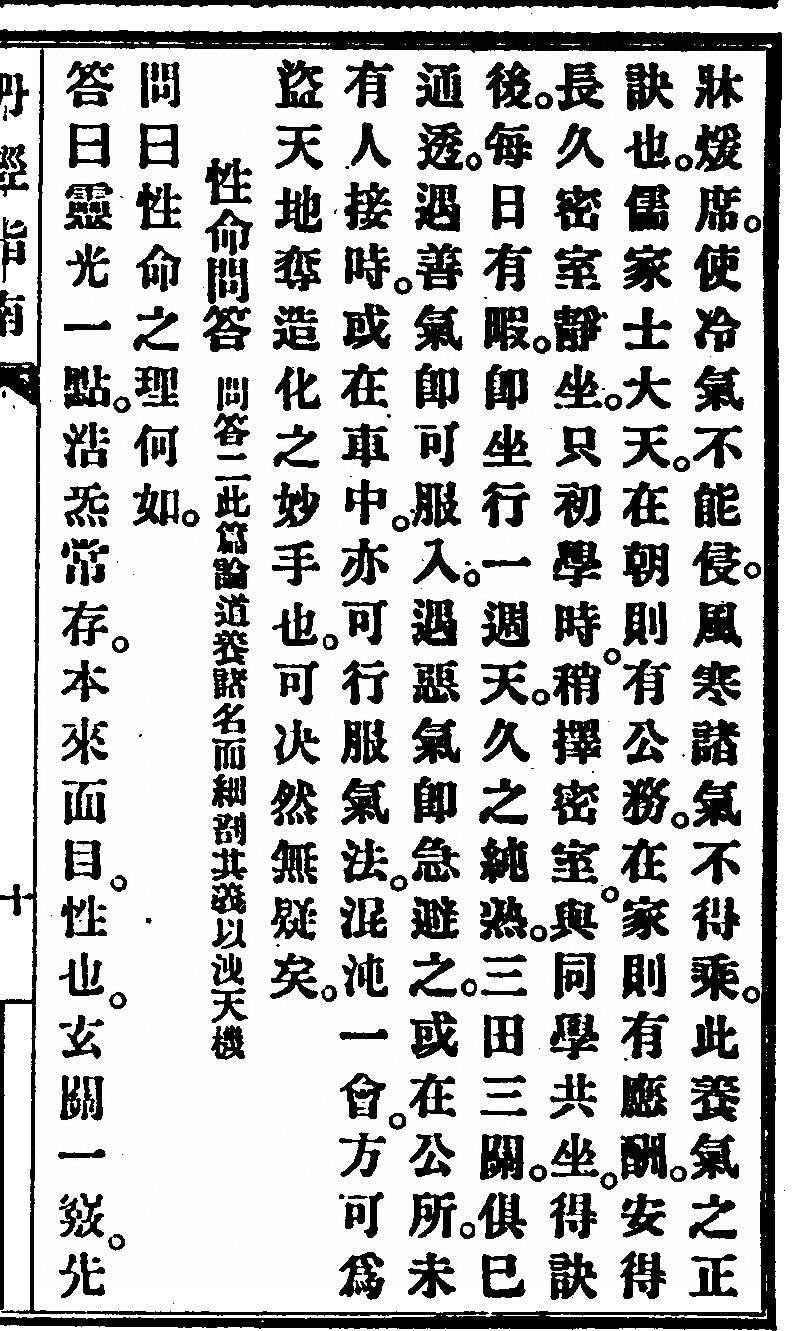 牀煖席。使冷氣不能侵。風寒諸氣不得乘。此養氣之正
訣也。儒家士大夫。在朝則有公務。在家則有應酬。安得
長久密室靜坐。只初學時。稍擇密室。與同學共坐。得訣
後。每日有暇。即坐行一週天。久之純熟。三田三關。俱已
通透。遇善氣即可服入。遇惡氣即急避之。或在公所。未
有人接時。或在車中。亦可行服氣法。混沌一會。方可為
盜天地奪造化之妙手也。可決然無疑矣。
性命問答 問答二此篇論道養諸名而細剖其義以洩天機
問曰性命之理何如。
答曰靈光一點。浩炁常存。本來面目。性也。玄關一竅。先
丹經指南
十